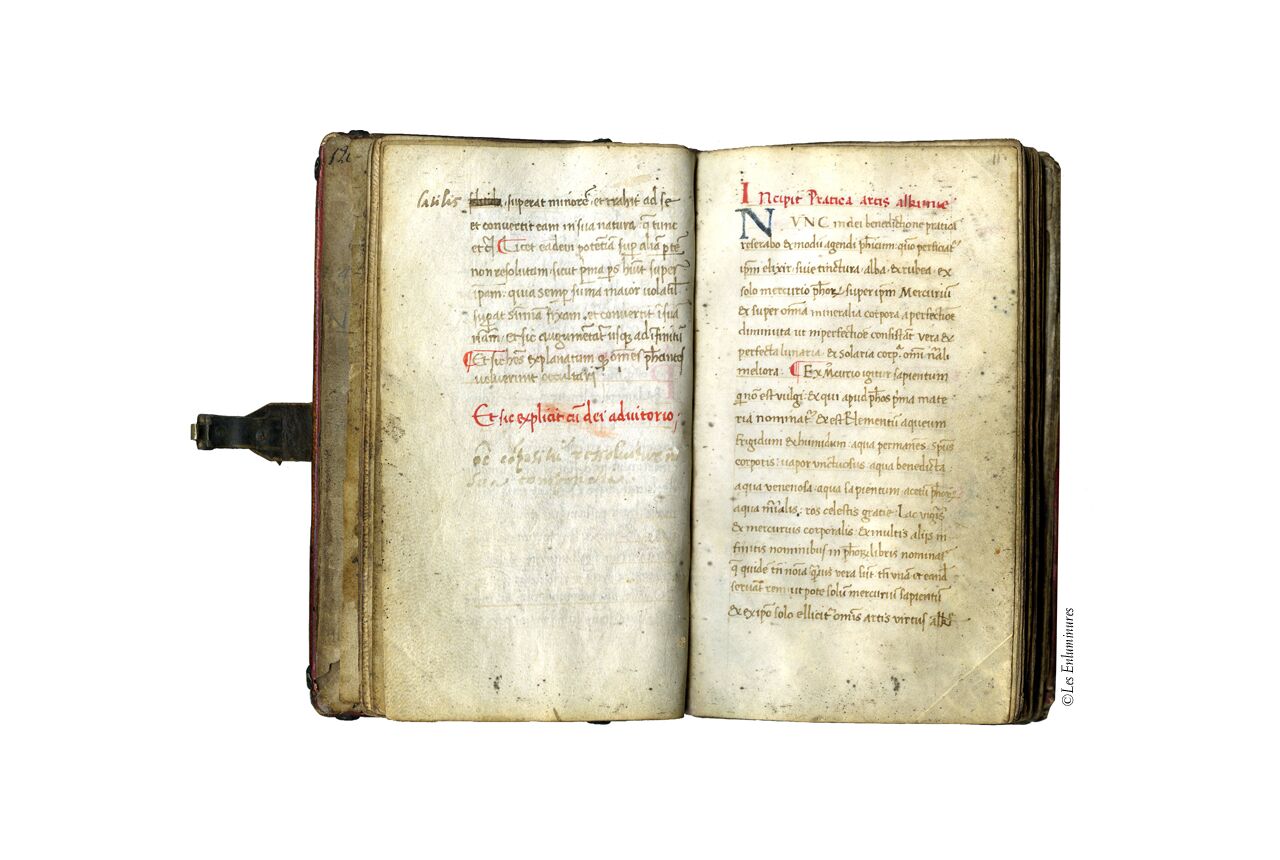 12
superat minorē et trahit ad se
et convertit eam in sua natura q̄ tunc
etc̄ Licet eadem potētia sup aliā ptē
non resolutam sicut pma ps huīt super
ipam quia semp suma maior volatil
supat sumā fixam et convertit ī suā
nām et sic augmētat usqȝ ad īfinitū
Et sic hēs explanatum q omēs phī antos
voluerunt occultari
Et sic explicit cū dei adiutorio
11
Incipit Pratica artis alkimie
NVNC in dei benedictione pratica
reserabo & modū agendi phicum quo perficat
ipm elixir sive tinctura alba & rubea ex
solo mercurio phoꝝ super ipm Mercuriū
& super omīa mineralia corpora a perfectiōe
diminuta ut inperfectiōe consistāt vera &
perfecta lunaria & solaria corpa omī nāli
meliora Ex Mcurio igitur sapientum
qi non est vulgi & qui apud phos pma mate
ria nominat & est Elementū aqueum
frigidum & humidum aqua permanēs spūs
corporis vapor unctuosus aqua benedicta
aqua venenosa aqua sapientum acetū phoꝝ
aqua mīalis ros celestis gratie Lac virgīs
& mercurius corporalis & multis aliis in
finitis nominibus in phoꝝ libris nominat
q quidē tn̄ noīa qvis vera sint tn̄ unā et eand
servāt rem ut pote solū mercuriū sapientū
& ex ipo solo ellicit omīs artis virtus
©Les Enluminures